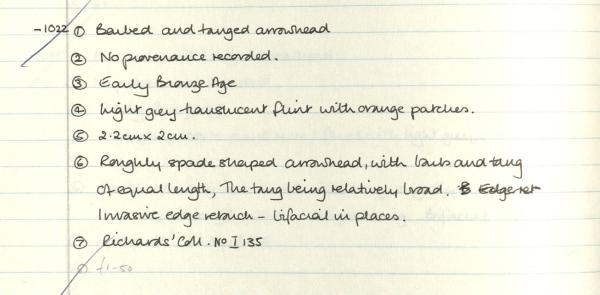 -1022 ① Barbed and tanged arrowhead
② No provenance recorded.
③ Early Bronze Age
④ Light grey translucent flint with orange patches.
⑤ 2.2cm x 2cm.
⑥ Roughly spade shaped arrowhead, with barbs and tang
of equal length, The tang being relatively broad. B Edge ret
Invasive edge retouch - bifacial in places.
⑦ Richards' Coll. No I 135
f1-50